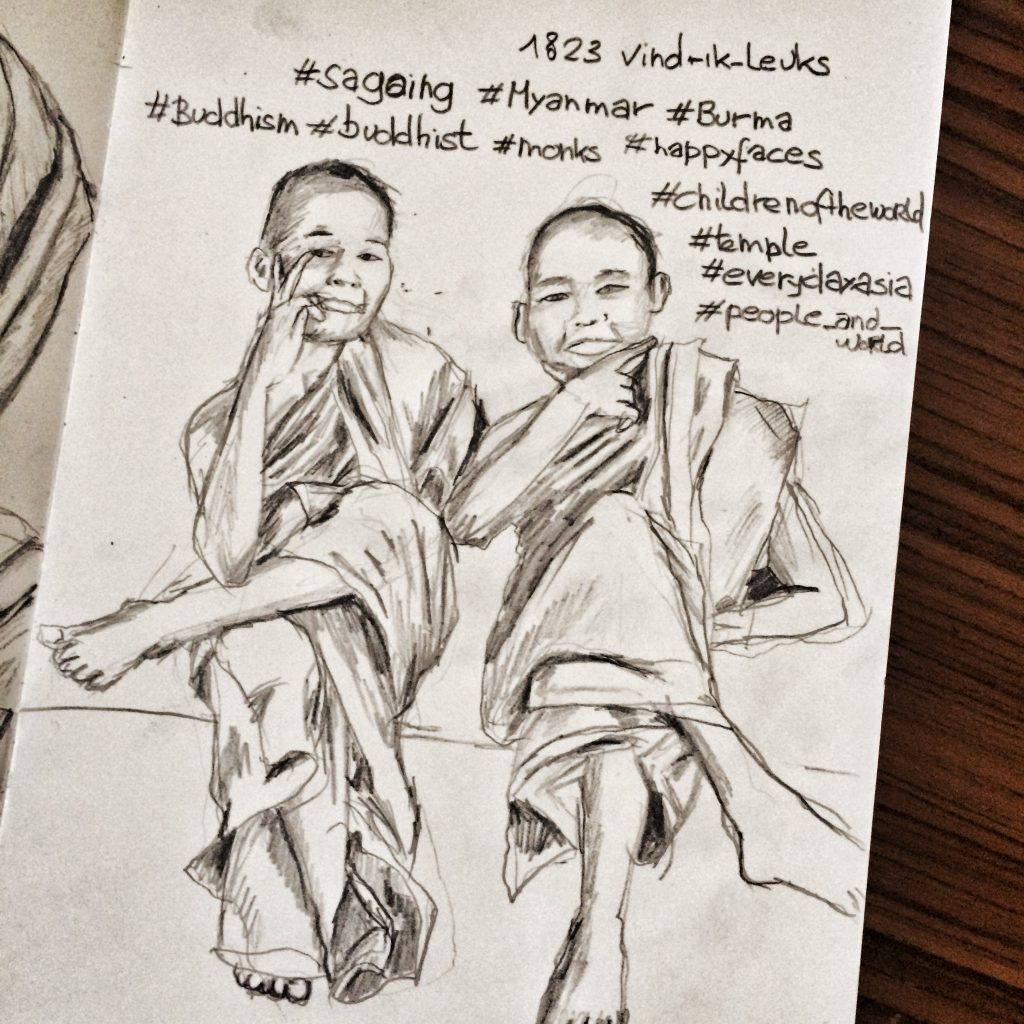 1823 vind-ik-leuks
#sagaing #Myanmar #Burma
#Buddhism #buddhist #monks #happyfaces
#childrenoftheworld
#temple
#everydayasia
#people_and_
world